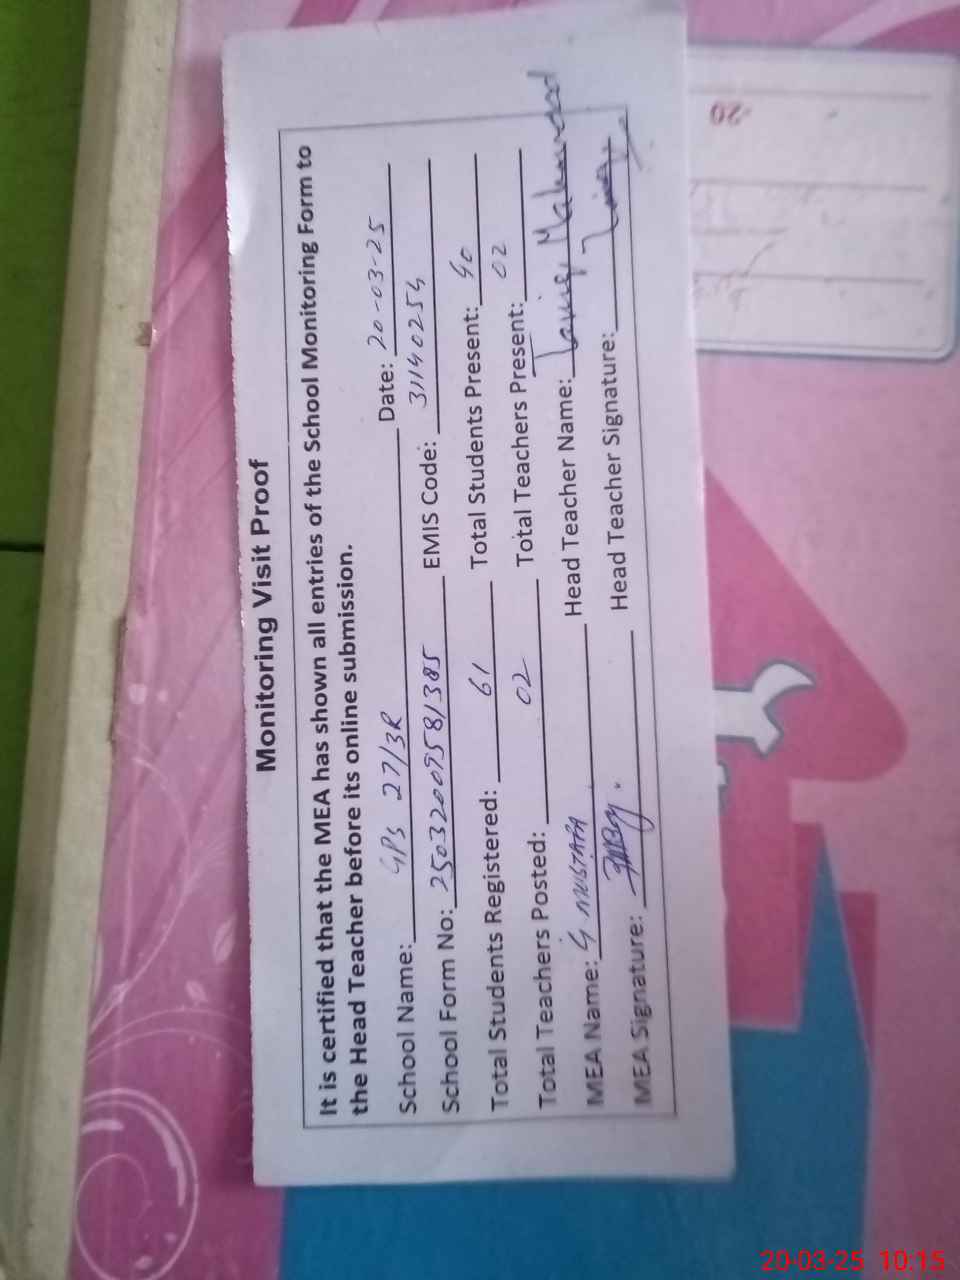 Monitoring Visit Proof
It is certified that the MEA has shown all entries of the School Monitoring Form to
the Head Teacher before its online submission.
School Name: GPS 27/3R Date: 20-03-25
School Form No: 25032009581385 EMIS Code: 31140254
Total Students Registered: 61 Total Students Present: 40
Total Teachers Posted: 02 Total Teachers Present: 02
MEA Name: G MUSTAFA Head Teacher Name: Mahmood
MEA Signature: Head Teacher Signature:
-20
20-03-25 10:15